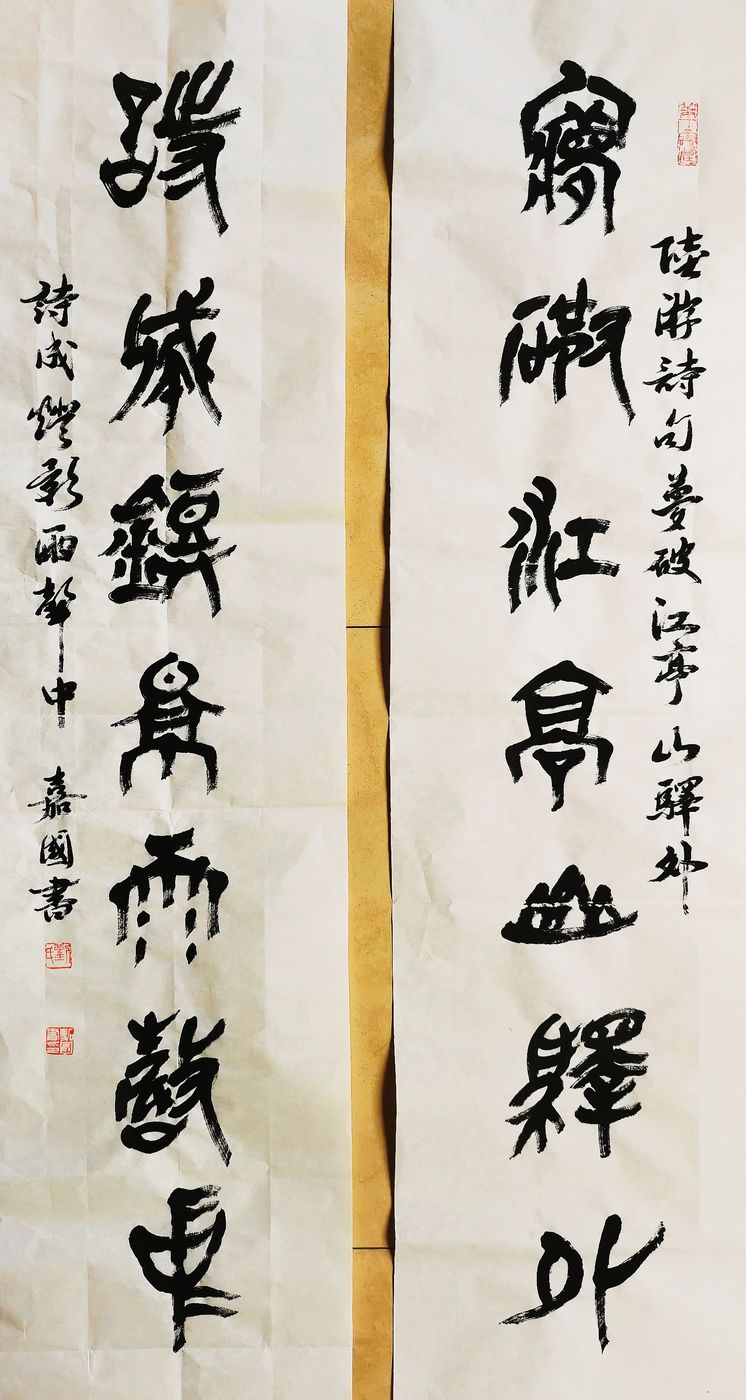 陸游詩句夢破江亭山驛外
夢破江亭山驛外
詩成鐙景雨聲中
詩成燈影雨聲中 嘉國書